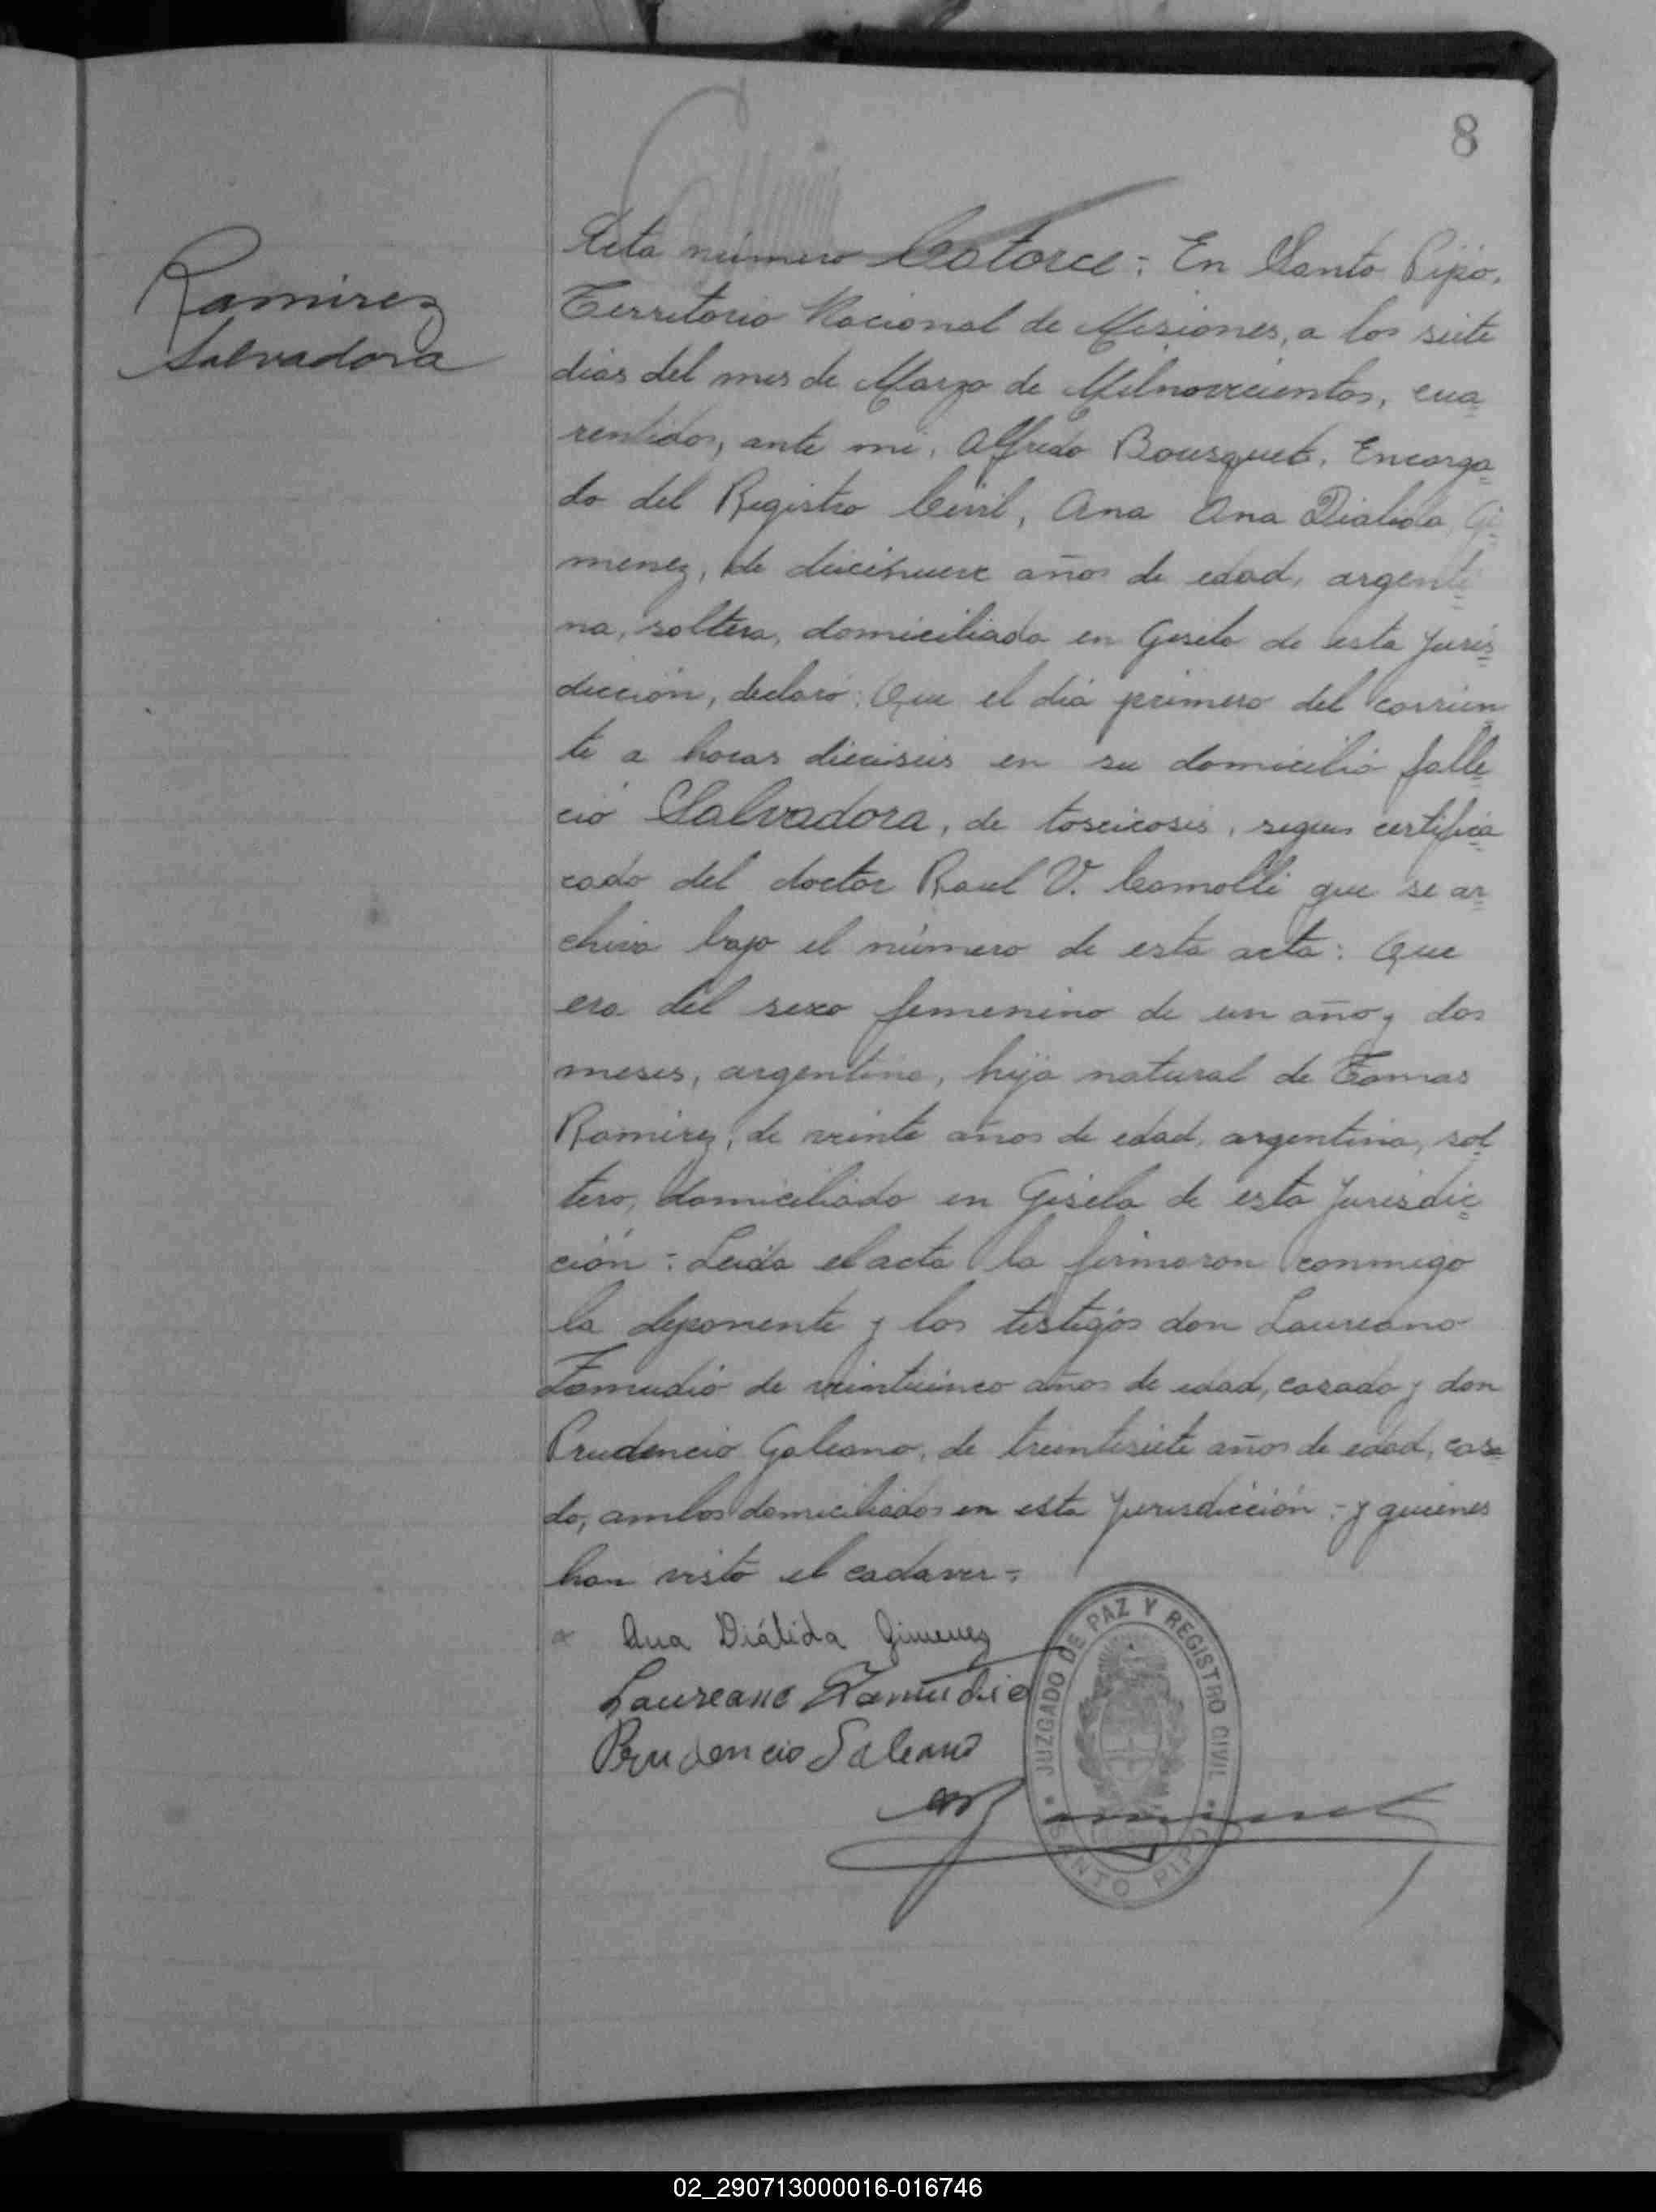 8
Ramirez
Salvadora
Acta número Catorce = En Santo Pipó,
Territorio Nacional de Misiones, a los siete
dias del mes de Marzo de Milnovecientos, cua=
rentidos, ante mi, Alfredo Bousquet, Encarga=
do del Registro Civil, Ana Ana Diálida Gi=
menez, de diecinueve años de edad, argenti=
na, soltera, domiciliada en Gisela de esta Juris=
dicción, declaró: Que el día primero del corrien=
te a horas dieciseis en su domicilio falle=
ció Salvadora, de toscicosis, segun certifica=
cado del doctor Raul V. Comolli que se ar=
chiva bajo el número de esta acta: Que
era del sexo femenino de un año y dos
meses, argentina, hija natural de Tomas
Ramirez, de veinte años de edad, argentino, sol=
tero, domiciliado en Gisela de esta Jurisdic=
ción = Leida el acta la firmaron conmigo
la deponente y los testigos don Laureano
Zamudio de veinticinco años de edad, casado y don
Prudencio Galeano, de treintisiete años de edad, casa=
do, ambos domiciliados en esta Jurisdicción = y quienes
han visto el cadaver =
Ana Diálida Gimenez
Laureano Zamudio
Prudencio Galeano
JUZGADO DE PAZ Y REGISTRO CIVIL
SANTO PIPO
02_290713000016-016746